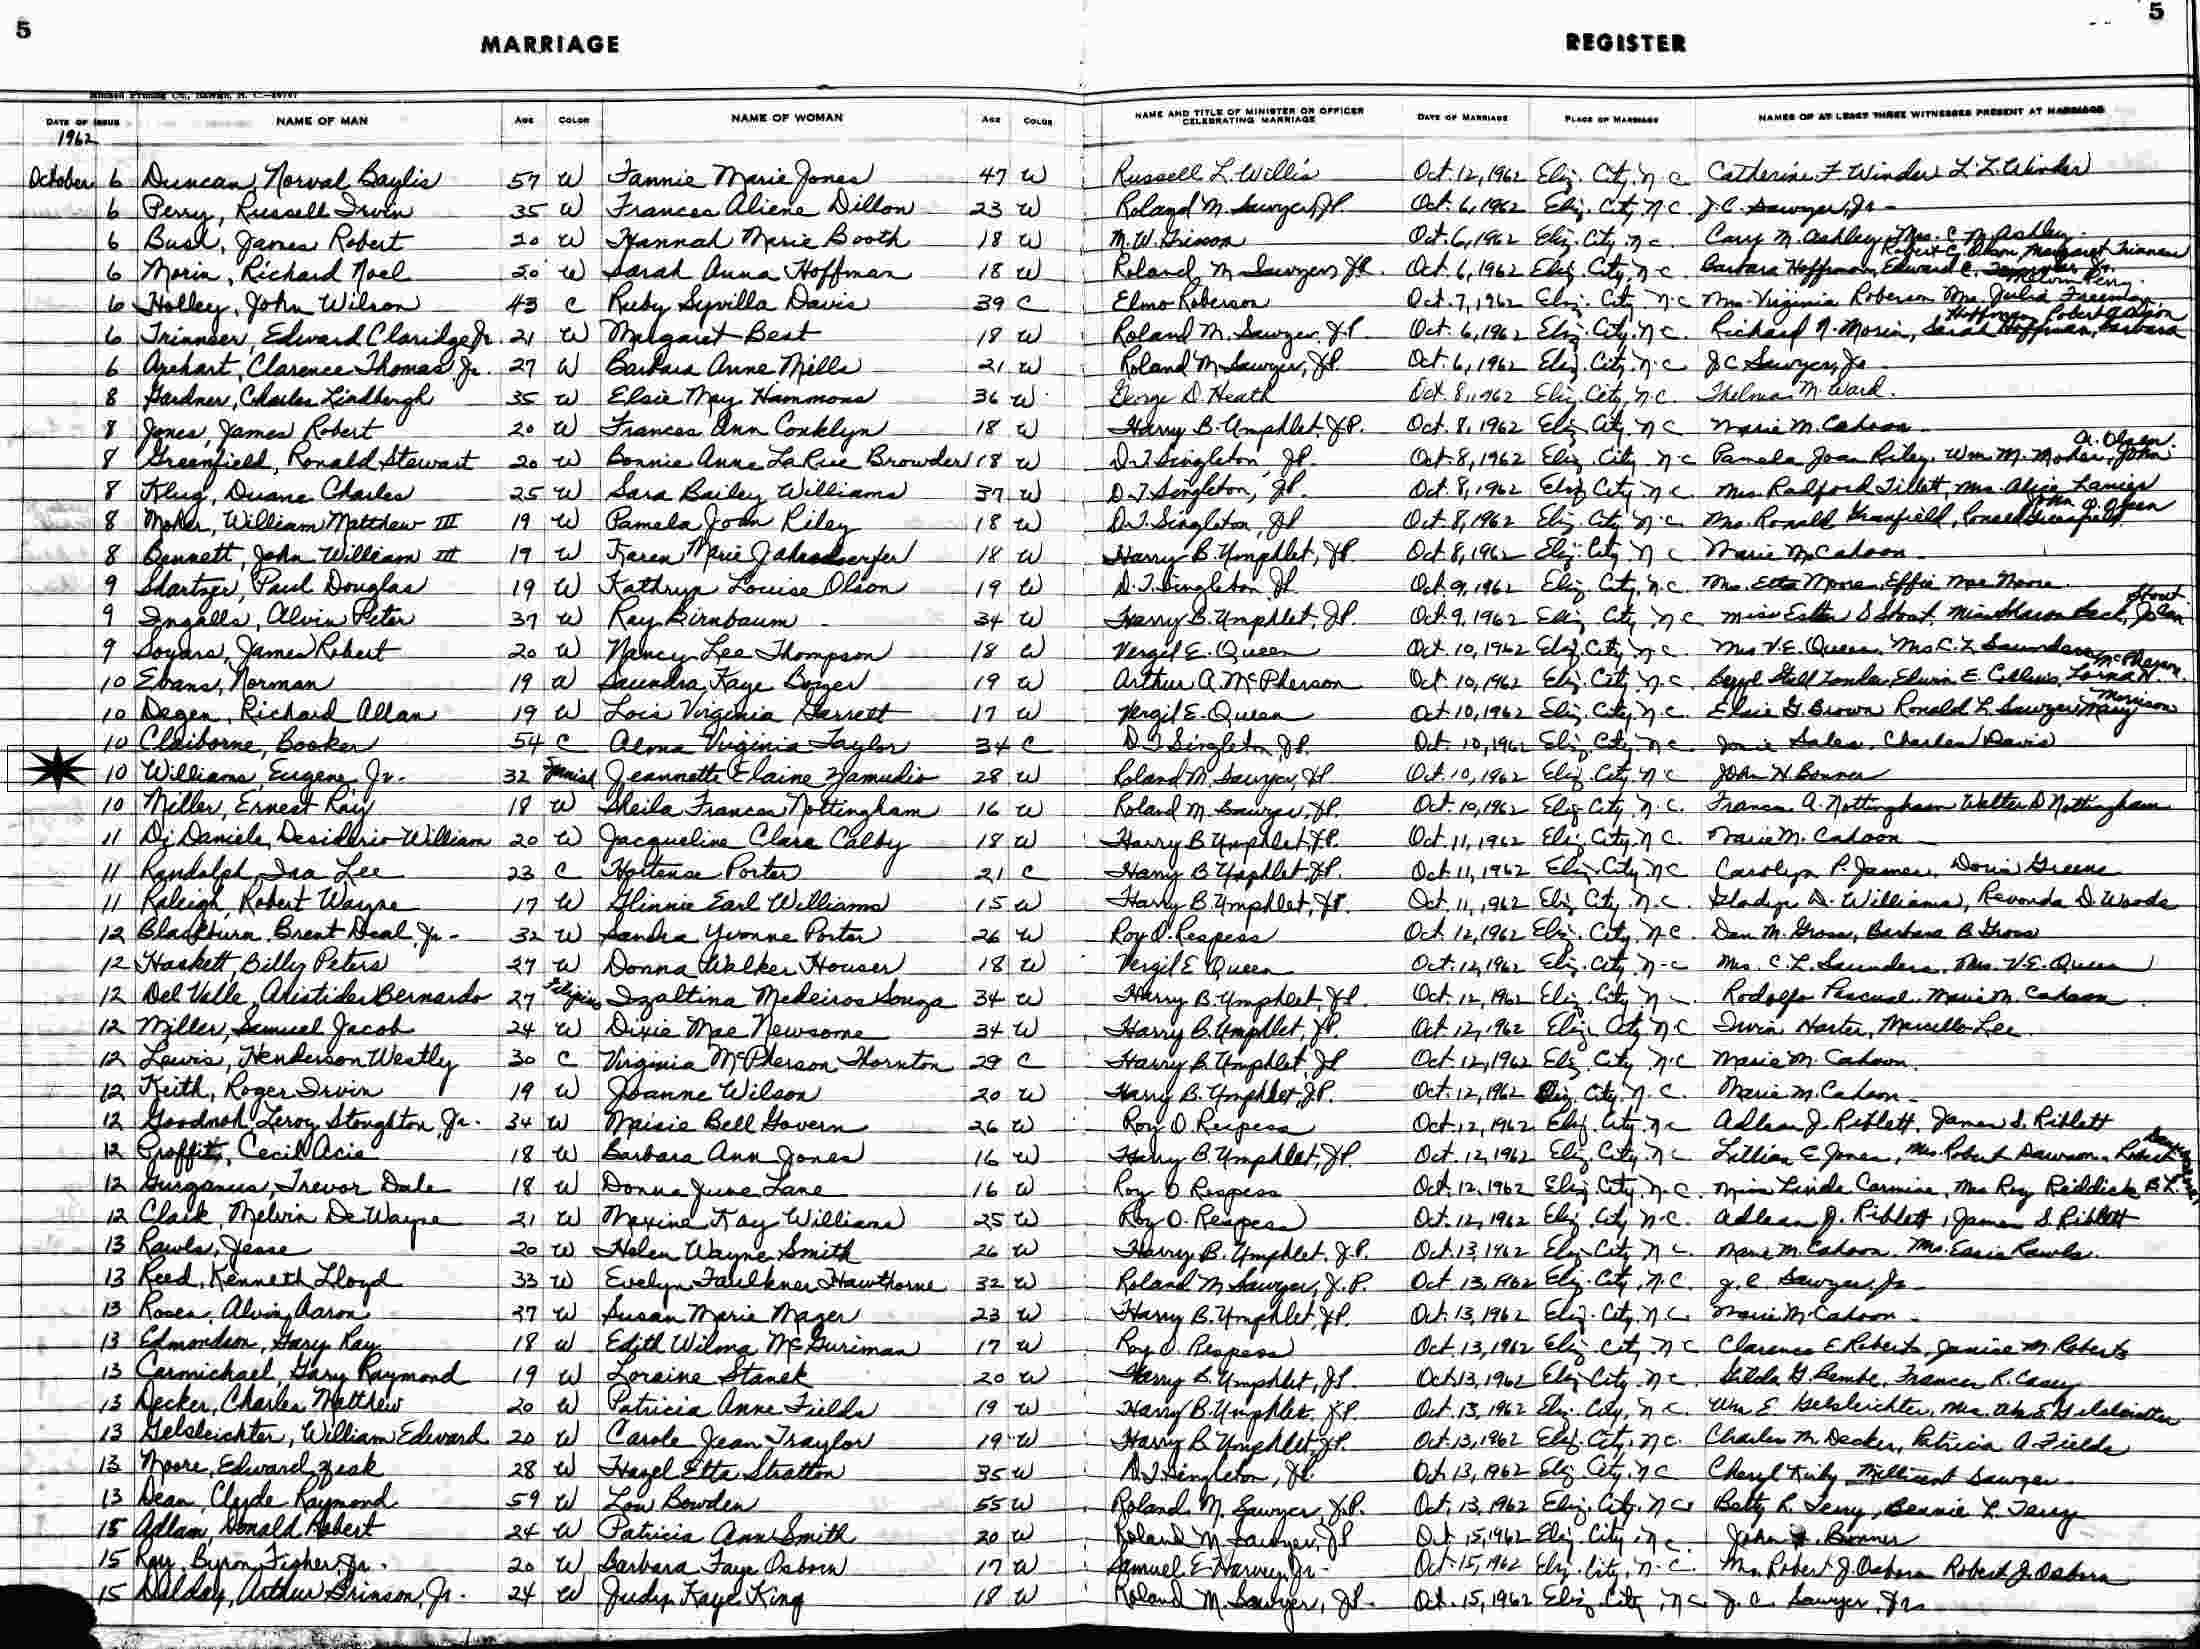 5 5
MARRIAGE REGISTER
DATE OF ISSUE NAME OF MAN AGE COLOR NAME OF WOMAN AGE COLOR NAME AND TITLE OF MINISTER OR OFFICER CELEBRATING MARRIAGE DATE OF MARRIAGE PLACE OF MARRIAGE NAMES OF AT LEAST THREE WITNESSES PRESENT AT MARRIAGE
1962
October 6 Duncan, Norval Baylis 57 W Fannie Marie Jones 47 W Russell L. Willis Oct. 12, 1962 Eliz. City, N C Catherine F Winder L. L. Winder
6 Perry, Russell Irvin 35 W Frances Aliene Dillon 23 W Roland M. Sawyer, J.P. Oct. 6, 1962 Eliz. City, N C J. C. Sawyer, Jr.
6 Bush, James Robert 20 W Hannah Marie Booth 18 W M. W. Oct. 6, 1962 Eliz. City, N C. Cary M. Ashley, Mrs. C. M. Ashley
6 Morin, Richard Noel 20 W Sarah Anna Hoffman 18 W Roland M Sawyer, J.P. Oct. 6, 1962 Eliz. City, N C. Barbara Hoffman, Edward C. Robert C. Margaret Trinneer
6 Holley, John Wilson 43 C Ruby Syvilla Davis 39 C Elmo Roberson Oct. 7, 1962 Eliz. City, N C Mrs. Virginia Roberson Mrs. Julia Freeman, Melvin Perry
6 Trinneer, Edward Claridge Jr. 21 W Margaret Best 18 W Roland M. Sawyer, J.P. Oct. 6, 1962 Eliz. City, N C. Richard N. Morin, Sarah Hoffman, Barbara Hoffman, Robert
6 Arehart, Clarence Thomas Jr. 27 W Barbara Anne Mills 21 W Roland M Sawyer, J.P. Oct. 6, 1962 Eliz. City, N C J C Sawyer, Jr
8 Gardner, Charles Lindbergh 35 W Elsie May Hammons 36 W George D. Heath Oct 8, 1962 Eliz. City, N.C. Thelma M. Ward.
8 Jones, James Robert 20 W Frances Ann Conklyn 18 W Harry B. Umphlet, J.P. Oct. 8, 1962 Eliz. City, N C Marie M. Cahoon
8 Greenfield, Ronald Stewart 20 W Bonnie Anne LaRue Browder 18 W D. T. Singleton, J.P. Oct. 8, 1962 Eliz. City, N C Pamela Joan Riley, Wm M. Moher, John A. Olsen.
8 Klug, Duane Charles 25 W Sara Bailey Williams 37 W D. T. Singleton, J.P. Oct. 8, 1962 Eliz City, N C. Mrs. Radford Tillett, Mrs. Alice Lanier
8 Moher, William Matthew III 19 W Pamela Joan Riley 18 W D. T. Singleton, J.P Oct. 8, 1962 Eliz. City, N.C. Mrs. Ronald Greenfield, Ronald Greenfield, John A. Olsen
8 Bennett, John William III 19 W Karen Marie 18 W Harry B. Umphlet, J.P. Oct. 8, 1962 Eliz. City, N C Marie M Cahoon
9 Shartzer, Paul Douglas 19 W Kathryn Louise Olson 19 W D. T. Singleton, J.P. Oct. 9, 1962 Eliz. City, N.C. Mrs. Etta Moore, Effie Mae Moore.
9 Ingalls, Alvin Peter 37 W Ray Birnbaum 34 W Harry B. Umphlet, J.P. Oct. 9, 1962 Eliz City, N C Miss Esther S Stout, Miss Sharon Beck, John Stout
9 Soyars, James Robert 20 W Nancy Lee Thompson 18 W Vergil E. Queen Oct. 10, 1962 Eliz. City, N C. Mrs V. E. Queen, Mrs C. L Saunders
10 Evans, Norman 19 W Saundra Kaye Boyer 19 W Arthur A. McPherson Oct. 10, 1962 Eliz. City, N C. Edwin E. Collins, Lorna H. McPherson
10 Degen, Richard Allan 19 W Lois Virginia Garrett 17 W Vergil E. Queen Oct. 10, 1962 Eliz. City, N C. Elsie G. Brown Ronald L. Sawyer Mary Morrison
10 Claiborne, Booker 54 C Alma Virginia Taylor 34 C D. T. Singleton, J.P. Oct. 10, 1962 Eliz. City, N C Charles Davis
10 Williams, Eugene, Jr. 32 Spanish Jeannette Elaine Zamudio 28 W Roland M. Sawyer, J.P. Oct. 10, 1962 Eliz. City, N C John H. Bonner
10 Miller, Ernest Ray 18 W Sheila Frances Nottingham 16 W Roland M. Sawyer, J.P. Oct. 10, 1962 Eliz. City, N.C. Frances A. Nottingham Walter D Nottingham
11 Di Daniele, Desiderio William 20 W Jacqueline Clare Calby 18 W Harry B Umphlet, J.P. Oct. 11, 1962 Eliz. City, N C Marie M. Cahoon
11 Randolph, Ira Lee 23 C Hortense Porter 21 C Harry B Umphlet, J.P. Oct. 11, 1962 Eliz. City, N C Carolyn P. James, Doris Greene
11 Raleigh, Robert Wayne 17 W Glinnie Earl Williams 15 W Harry B. Umphlet, J.P. Oct. 11, 1962 Eliz City, N.C. Gladys D. Williams, Revonda D. Woods
12 Blackburn, Brent Deal, Jr. 32 W Sandra Yvonne Porter 26 W Roy O. Respess Oct. 12, 1962 Eliz. City, N C. Dan M. Gross, Barbara B Gross
12 Haskett, Billy Peters 27 W Donna Walker Houser 18 W Vergil E Queen Oct. 12, 1962 Eliz. City, N C Mrs. C. L. Saunders, Mrs. V. E. Queen
12 Del Valle, Aristides Bernardo 27 Filipino Izaltina Medeiros Souza 34 W Harry B. Umphlet, J.P. Oct. 12, 1962 Eliz. City, N C Rodolfo Pascual, Marie M. Cahoon
12 Miller, Samuel Jacob 24 W Dixie Mae Newsome 34 W Harry B. Umphlet, J.P. Oct. 12, 1962 Eliz. City, N C Irvin Harter, Marcello Lee.
12 Lewis, Henderson Westly 30 C Virginia McPherson Thornton 29 C Harry B. Umphlet, J.P Oct. 12, 1962 Eliz. City, N.C Marie M. Cahoon.
12 Keith, Roger Irvin 19 W Joanne Wilson 20 W Harry B. Umphlet, J.P. Oct. 12, 1962 Eliz. City, N. C. Marie M. Cahoon
12 Goodnoh, Leroy Stoughton, Jr. 34 W Maisie Bell Govern 26 W Roy O. Respess Oct. 12, 1962 Eliz. City, N C Adlean J. Riblett, James S. Riblett
12 Proffitt, Cecil Acie 18 W Barbara Ann Jones 16 W Harry B. Umphlet, J.P. Oct. 12, 1962 Eliz. City, N C Lillian E Jones, Mrs. Robert Dawson, Robert
12 Gurganus, Trevor Dale 18 W Donna June Lane 16 W Roy O Respess Oct. 12, 1962 Eliz. City, N.C. Miss Linda Carmine, Mrs Roy Reddick
12 Clark, Melvin DeWayne 21 W Maxine Kay Williams 25 W Roy O. Respess Oct. 12, 1962 Eliz. City, N.C. Adlean J. Riblett, James S. Riblett
13 Rawls, Jesse 20 W Helen Wayne Smith 26 W Harry B. Umphlet, J.P. Oct. 13, 1962 Eliz City, N C. Marie M. Cahoon, Mrs. Essie Rawls.
13 Reed, Kenneth Lloyd 33 W Evelyn Faulkner Hawthorne 32 W Roland M Sawyer, J.P. Oct. 13, 1962 Eliz. City, N.C. J. C. Sawyer, Jr
13 Rosen, Alvin Aaron 37 W Susan Marie Mager 23 W Harry B. Umphlet, J.P. Oct. 13, 1962 Eliz. City, N C Marie M. Cahoon
13 Edmondson, Gary Ray 18 W Edith Wilma McGuriman 17 W Roy O. Respess Oct. 13, 1962 Eliz City, N C Clarence E Roberts, Janice M. Roberts
13 Carmichael, Gary Raymond 19 W Loraine Stanek 20 W Harry B. Umphlet, J.P. Oct. 13, 1962 Eliz. City, N C. Gilda G. Bembe, Frances R. Casey
13 Decker, Charles Matthew 20 W Patricia Anne Fields 19 W Harry B. Umphlet, J.P. Oct. 13, 1962 Eliz. City, N.C. Wm E. Gelsleichter, Mrs. Wm E. Gelsleichter
13 Gelsleichter, William Edward 20 W Carole Jean Traylor 19 W Harry B. Umphlet, J.P. Oct. 13, 1962 Eliz. City, N C. Charles M. Decker, Patricia A. Fields
13 Moore, Edward Zeak 28 W Hazel Etta Stratton 35 W D. T. Singleton, J.P. Oct. 13, 1962 Eliz. City, N C Cheryl Kirby Millicent Sawyer
13 Dean, Clyde Raymond 59 W Lou Bowden 55 W Roland M. Sawyer, J.P. Oct. 13, 1962 Eliz. City, N C. Betty R. Terry, Bennie L. Terry
15 Adlam, Donald Robert 24 W Patricia Ann Smith 20 W Roland M Sawyer, J.P Oct 15, 1962 Eliz. City, N C. John H. Bonner
15 Ray, Byron Fisher, Jr. 20 W Barbara Faye Osborn 17 W Samuel E Harvey, Jr. Oct. 15, 1962 Eliz. City, N.C. Mrs Robert J. Osborn Robert J. Osborn
15 Delday, Arthur Brinson, Jr. 24 W Judy Kaye King 18 W Roland M. Sawyer, J.P. Oct. 15, 1962 Eliz. City, N C J. C. Sawyer, Jr.